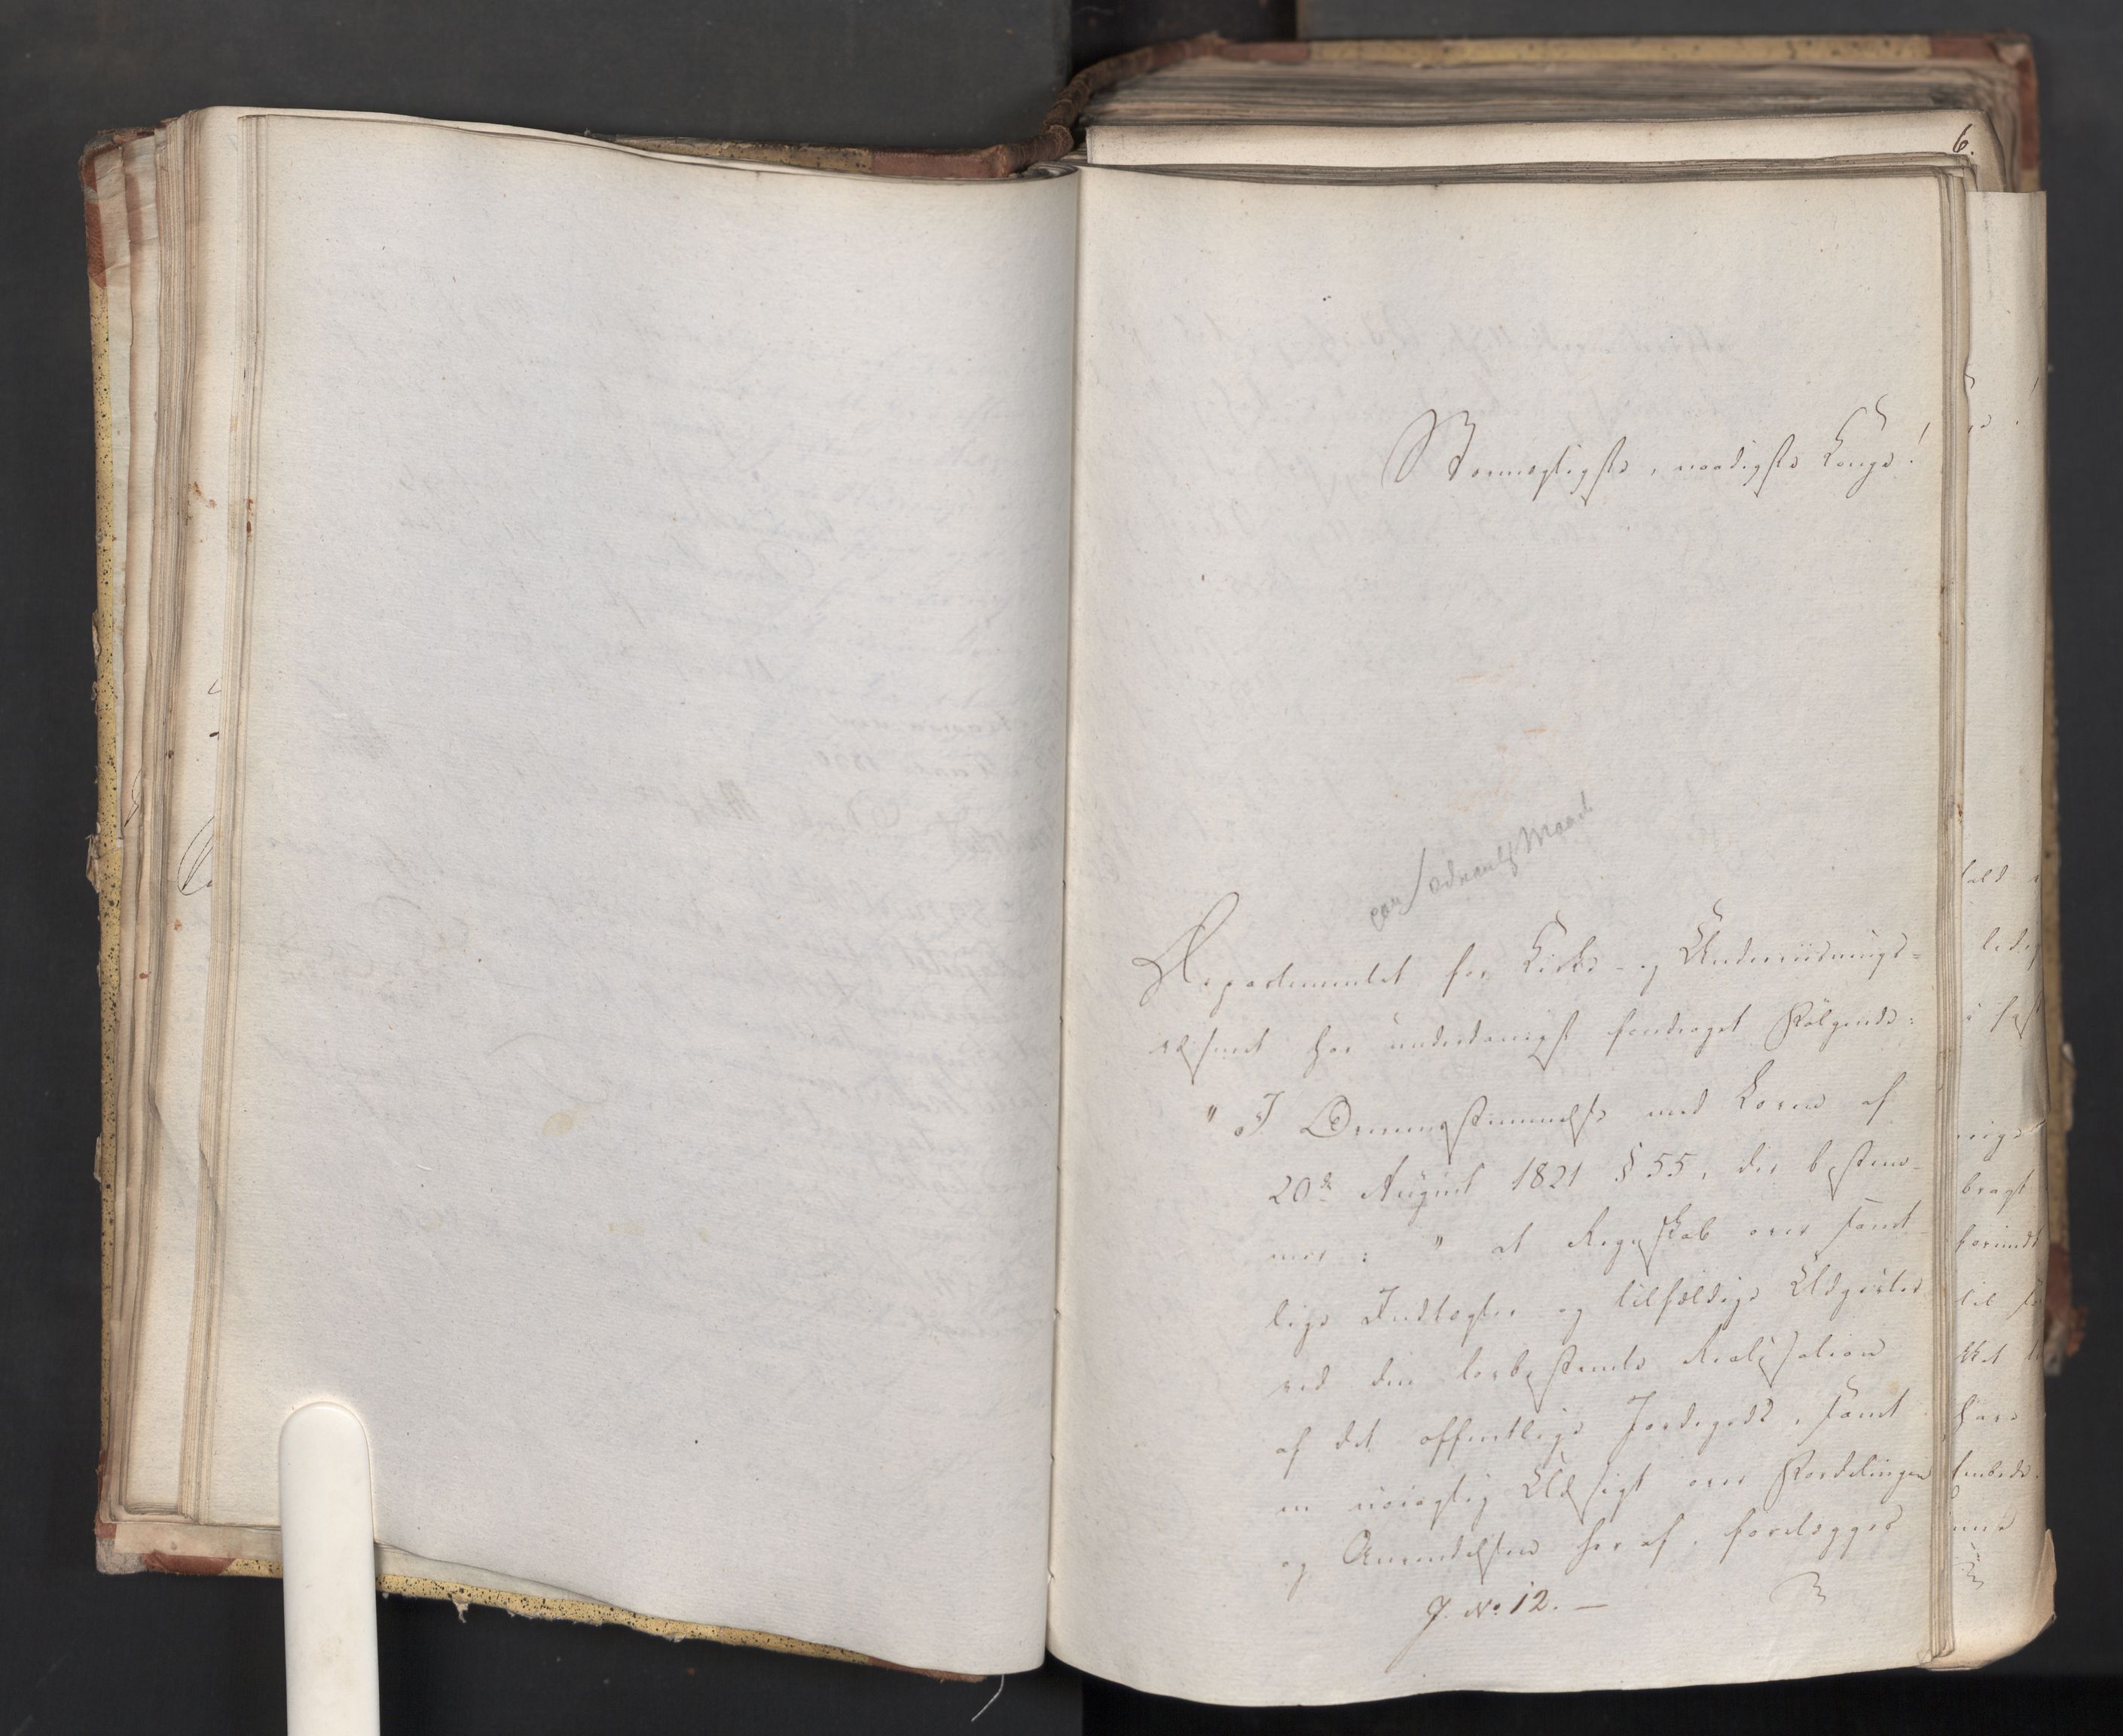 6.
Stormægtigste, naadigste Konge!
Departementet for Kirke- og Underviisnings-
væsenet har underdanigst foredraget Følgende:
" I Overensstemmelse med Loven af
20de August 1821 § 55, der bestem-
mer: " at Regnskab over samt-
lige Indtægter og tilfældige Udgivter
ved den lovbestemte Realisation
af det offentlige Jordegods, samt
en nøiagtig Udsigt over Fordelingen
og Anvendelsen heraf, forelægges
J. No. 12. —